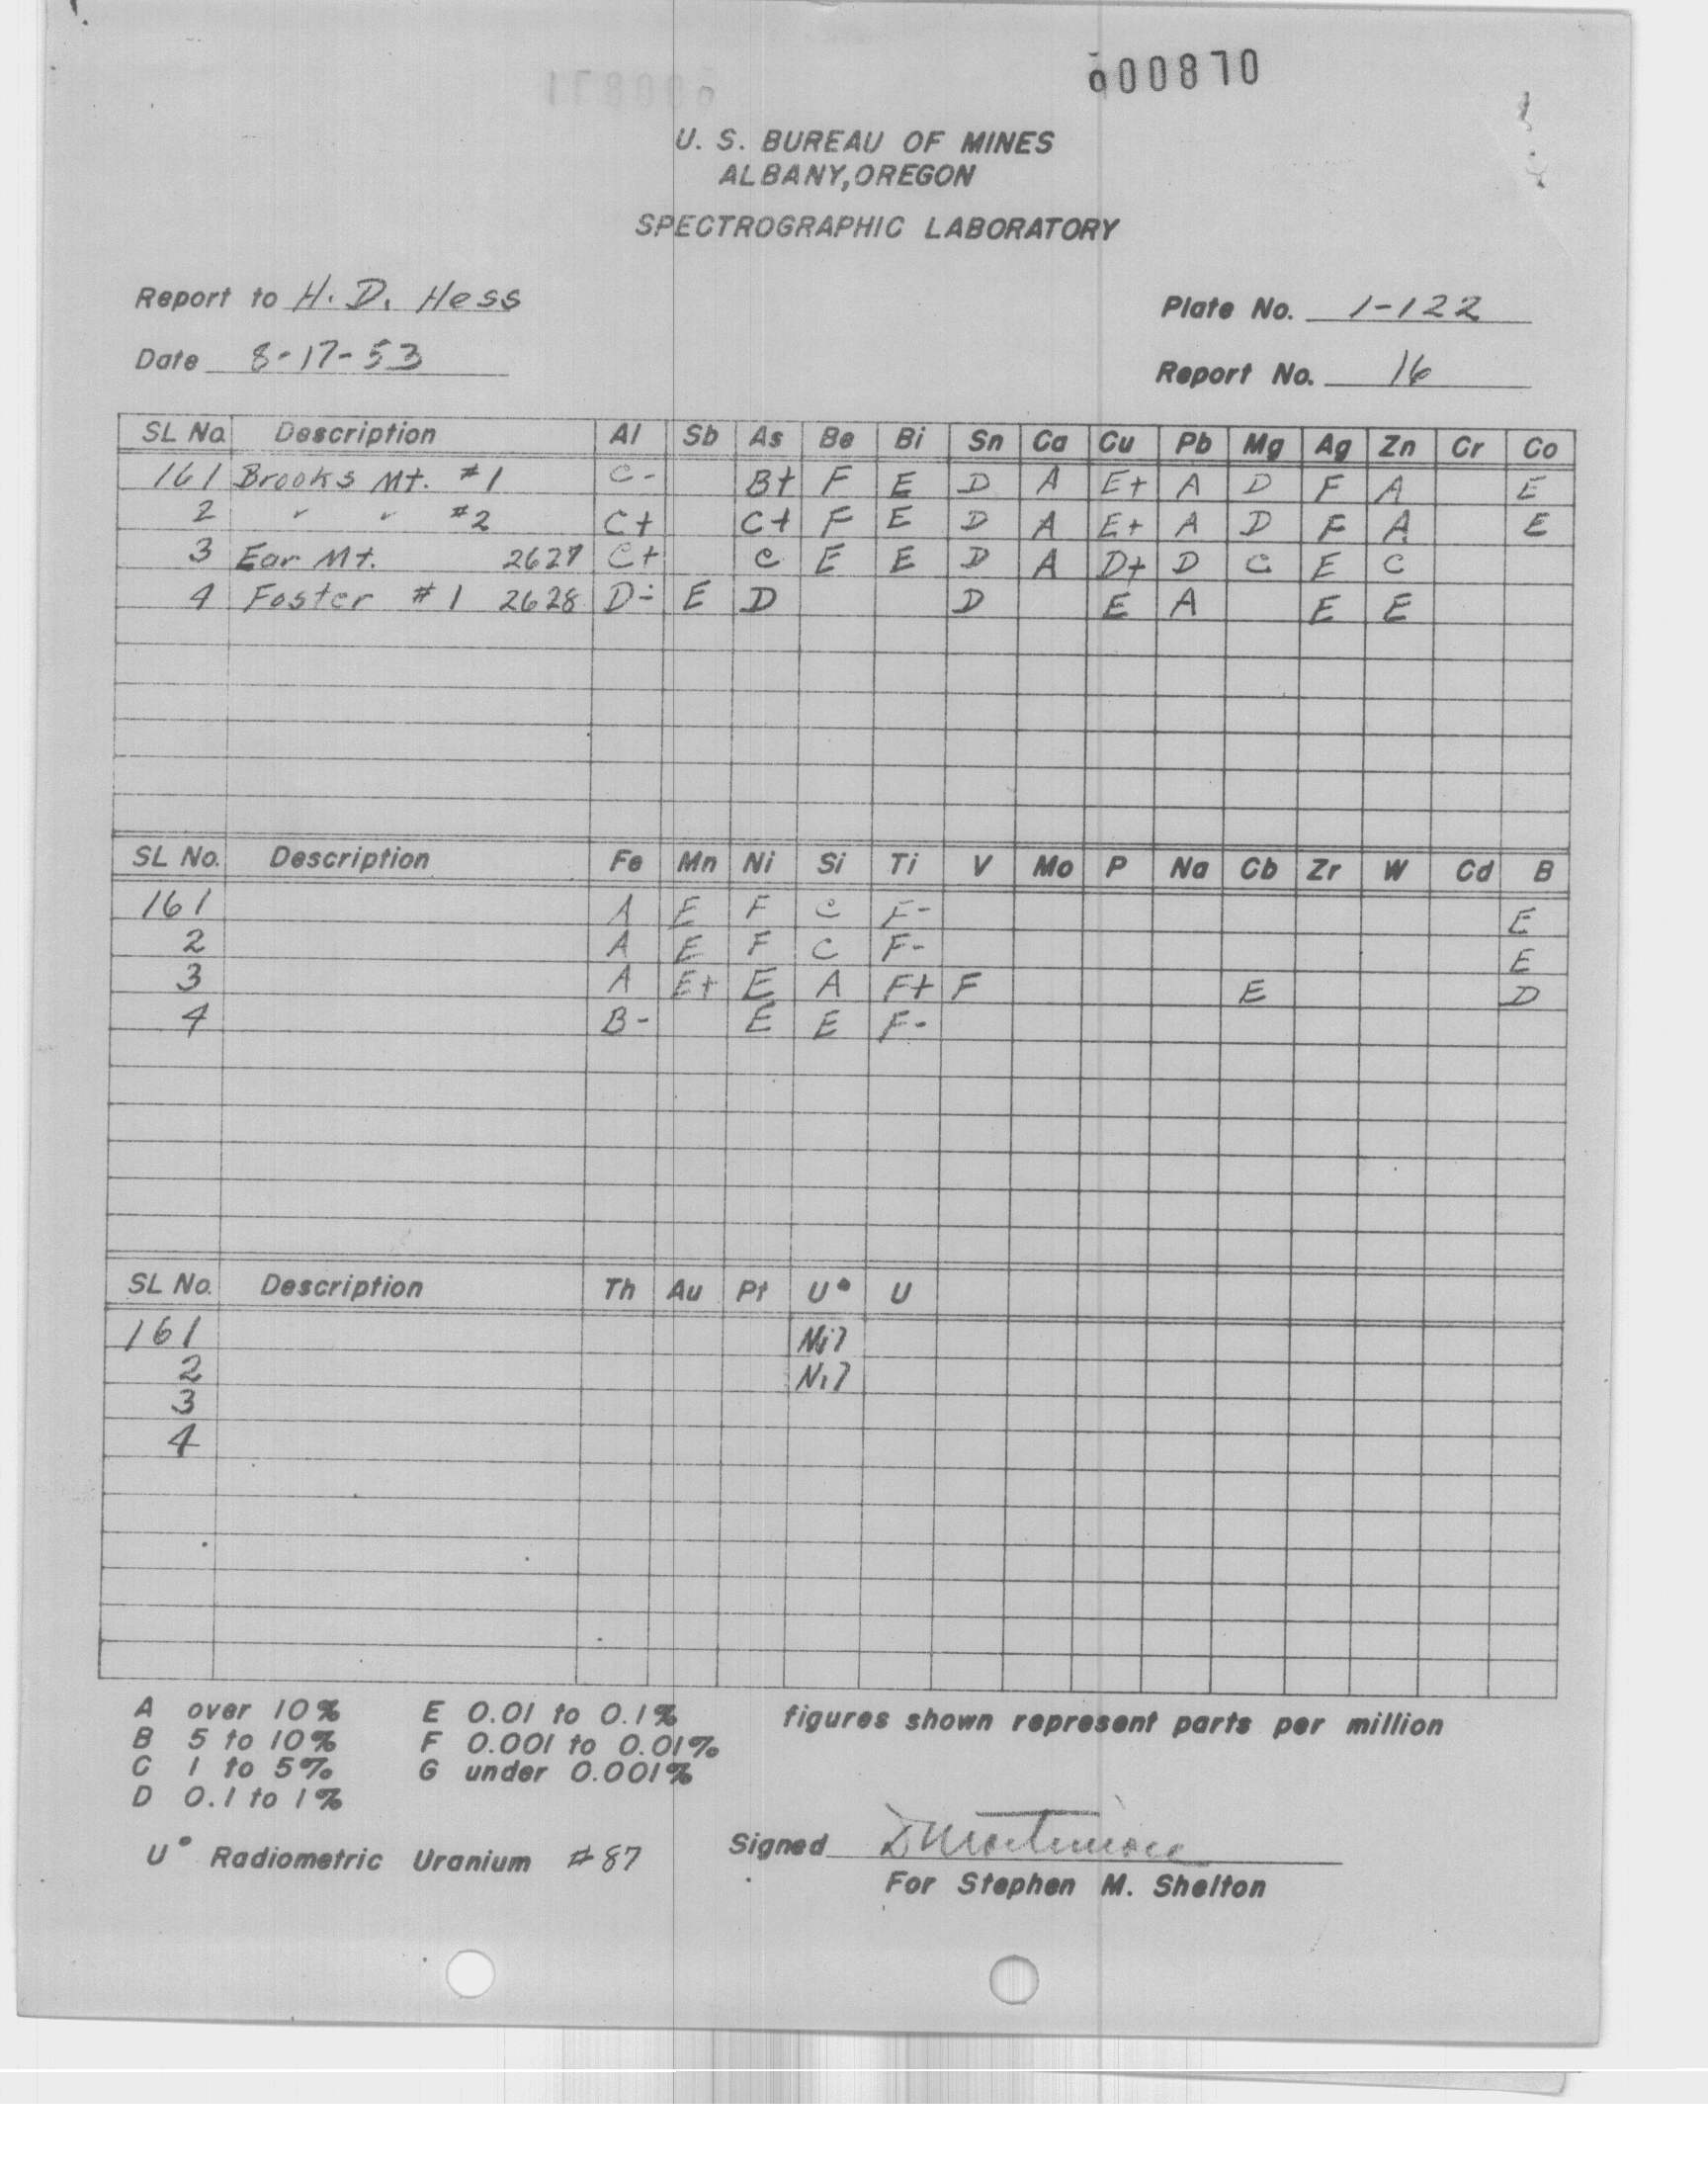 000870
U. S. BUREAU OF MINES
ALBANY, OREGON
SPECTROGRAPHIC LABORATORY
Report to H. D. Hess
Plate No. 1-122
Date 8-17-53
Report No. 16
SL No. Description Al Sb As Be Bi Sn Ca Cu Pb Mg Ag Zn Cr Co
161 Brooks Mt. #1 C- B+ F E D A E+ A D F A E
2 " " #2 C+ C+ F E D A E+ A D F A E
3 Ear Mt. 2627 C+ C E E D A D+ D C E C
4 Foster #1 2628 D- E D D E A E E
SL No. Description Fe Mn Ni Si Ti V Mo P Na Cb Zr W Cd B
161 A E F C F- E
2 A E F C F- E
3 A E+ E A F+ F E D
4 B- E E F-
SL No. Description Th Au Pt U* U
161 Nil
2 Nil
3
4
A over 10% E 0.01 to 0.1% figures shown represent parts per million
B 5 to 10% F 0.001 to 0.01%
C 1 to 5% G under 0.001%
D 0.1 to 1%
U* Radiometric Uranium #87
Signed
For Stephen M. Shelton